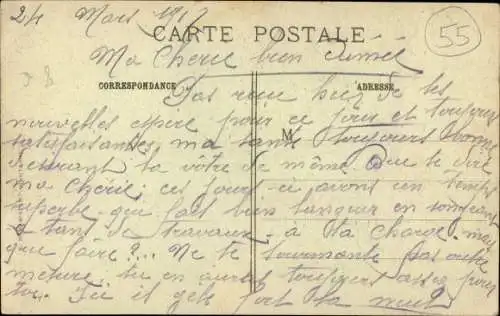 24 Mars 1917
CARTE POSTALE
55
Ma Cherie bien aimée
CORRESPONDANCE
ADRESSE
Pas reçu hier de tes
nouvelles espere pour ce jour et toujours
satisfaisantes, ma santé toujours bonne
M
desirant la vôtre de même. Que te dire
ma Cherie; ces jours-ci avons un temps
superbe que fait bien languir en songeant
a tant de travaux - a la charge. mais
que faire?... Ne te tourmente pas outre
mesure, tu en auras toujours assez pour
toi. Ici il gèle fort la nuit